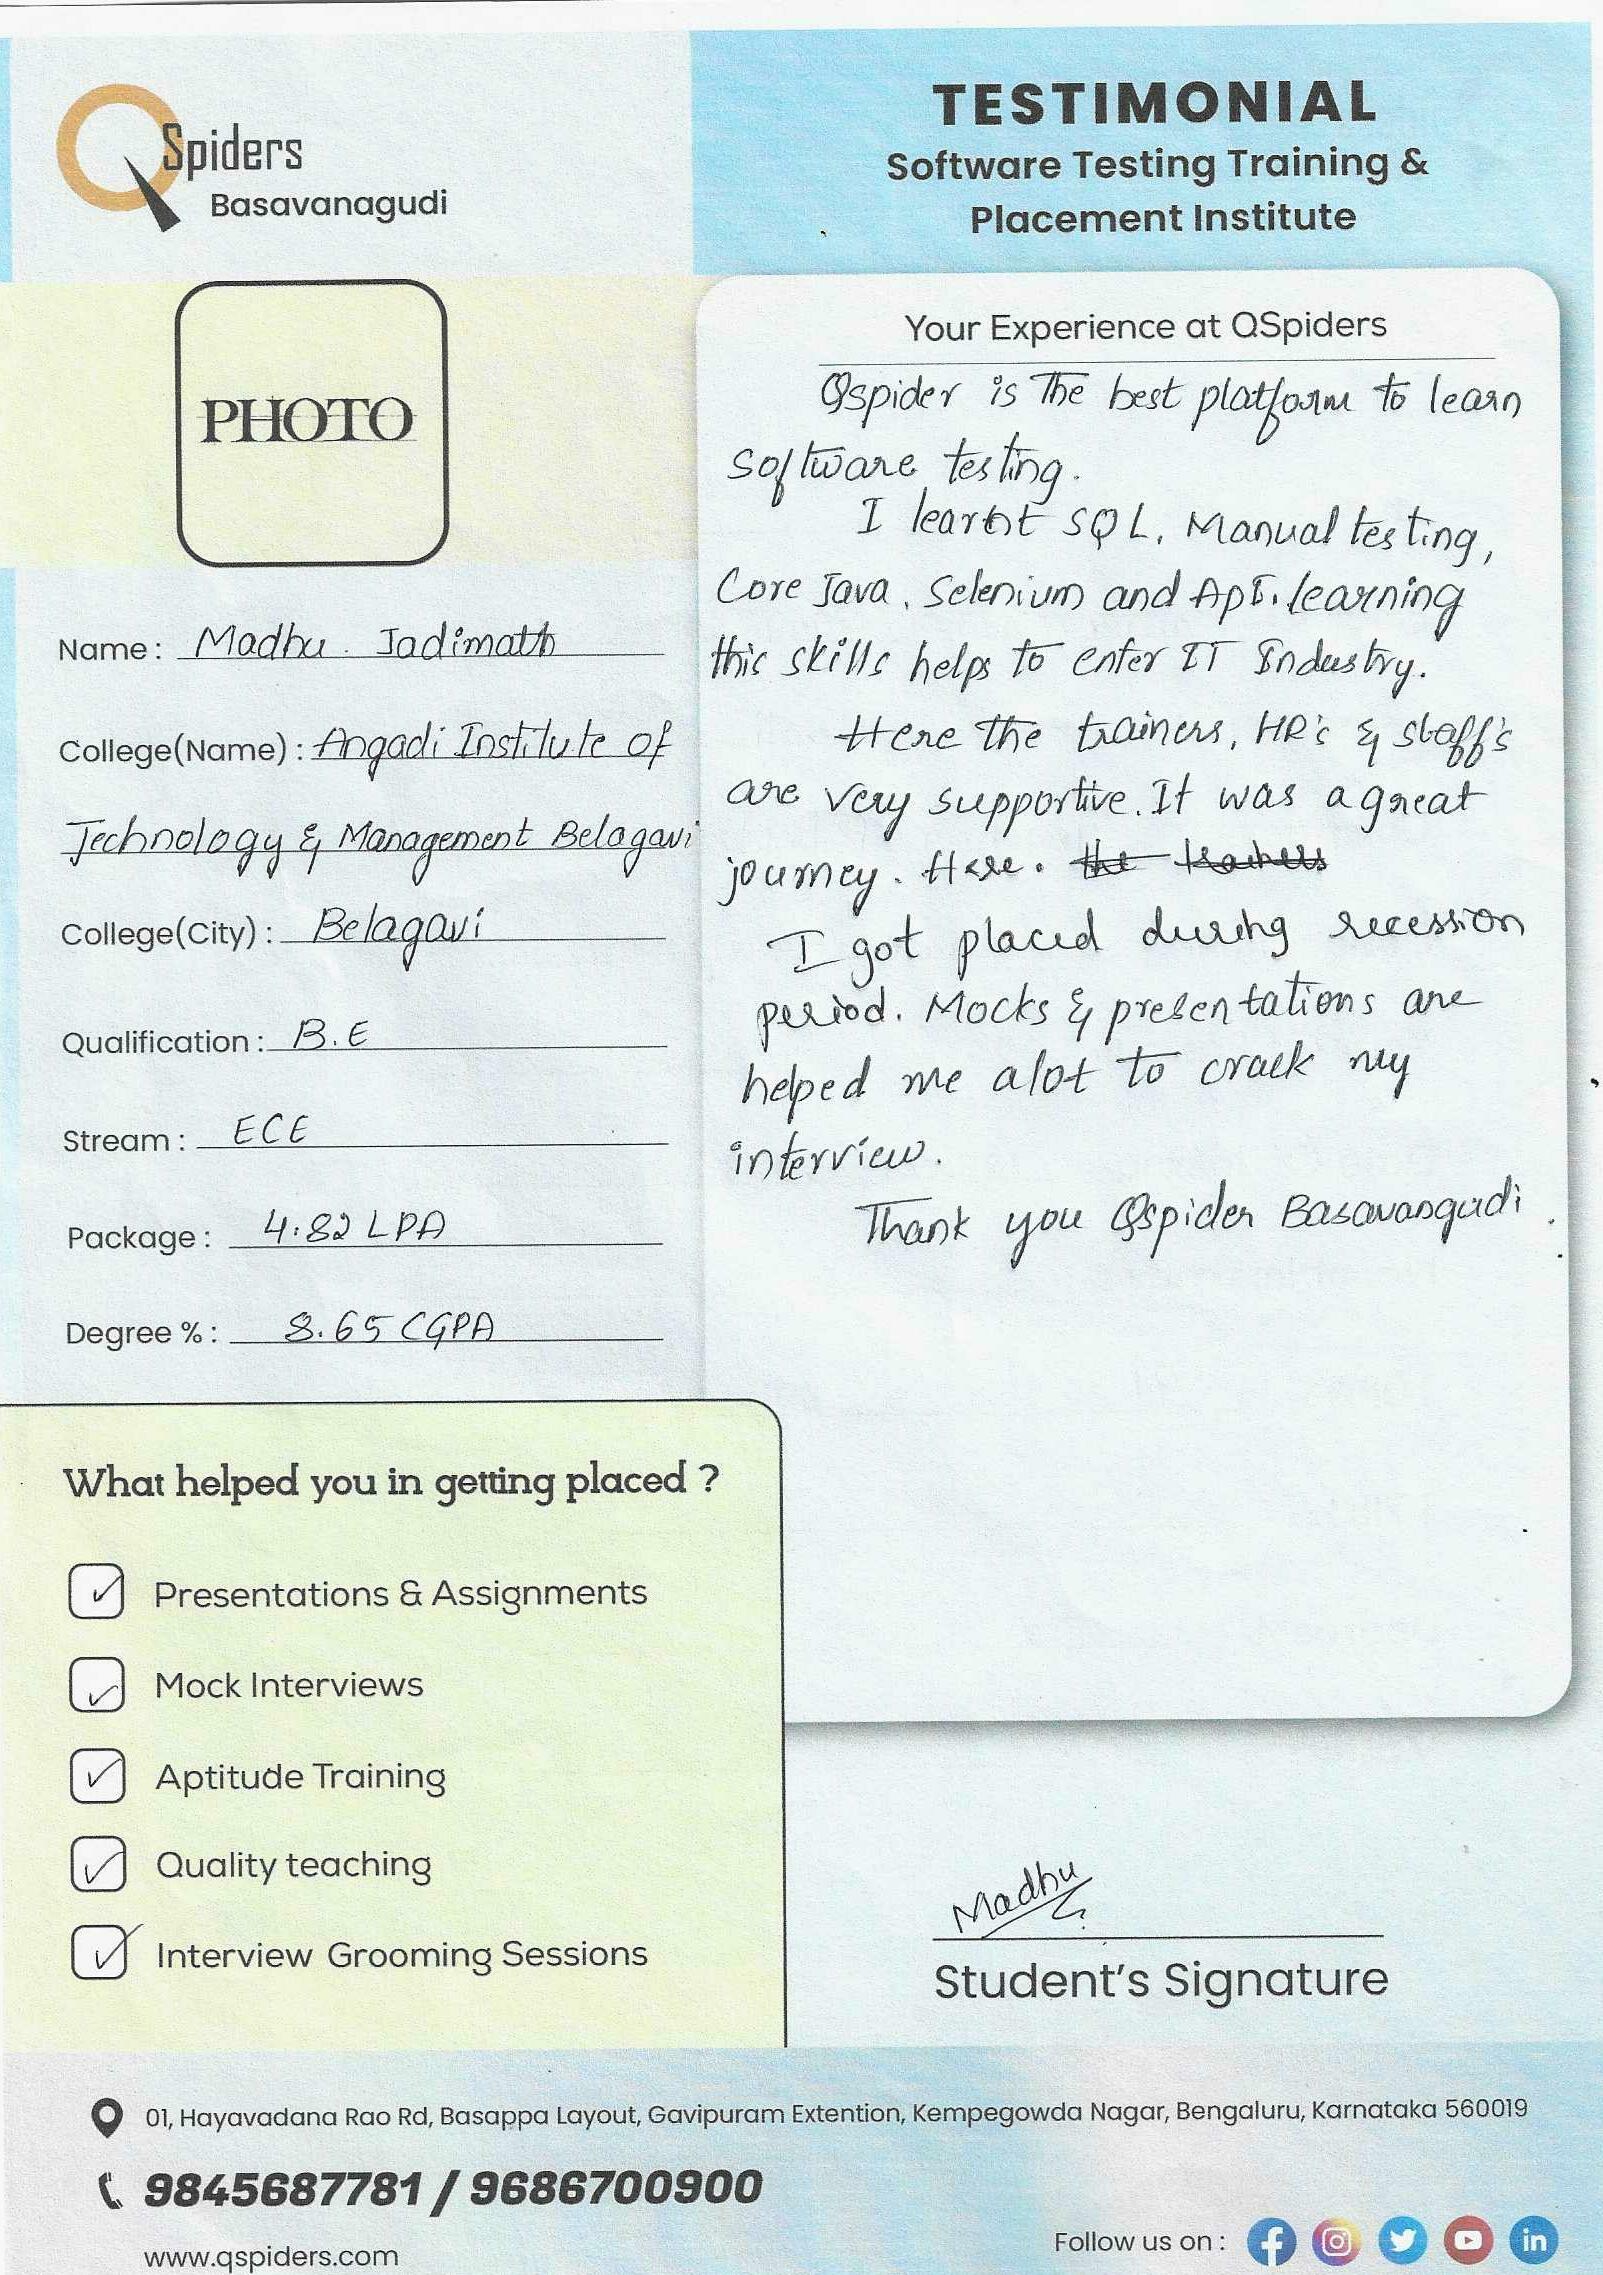 QSpiders
Basavanagudi
TESTIMONIAL
Software Testing Training &
Placement Institute
PHOTO
Name : Madhu . Jadimath
College(Name) : Angadi Institute of
Technology & Management Belagavi
College(City) : Belagavi
Qualification : B.E
Stream : ECE
Package : 4.82 LPA
Degree % : 8.65 CGPA
Your Experience at QSpiders
Qspider is The best platform to learn
software testing.
I learnt SQL, Manual testing,
Core Java, Selenium and ApI. learning
this skills helps to enter IT Industry.
Here the trainers, HR's & staff's
are very supportive. It was a great
journey. Here. the trainers
I got placed during recession
period. Mocks & presentations are
helped me alot to crack my
interview.
Thank you Qspider Basavangudi.
What helped you in getting placed ?
Presentations & Assignments
Mock Interviews
Aptitude Training
Quality teaching
Interview Grooming Sessions
Madhu
Student's Signature
01, Hayavadana Rao Rd, Basappa Layout, Gavipuram Extention, Kempegowda Nagar, Bengaluru, Karnataka 560019
9845687781 / 9686700900
www.qspiders.com
Follow us on :